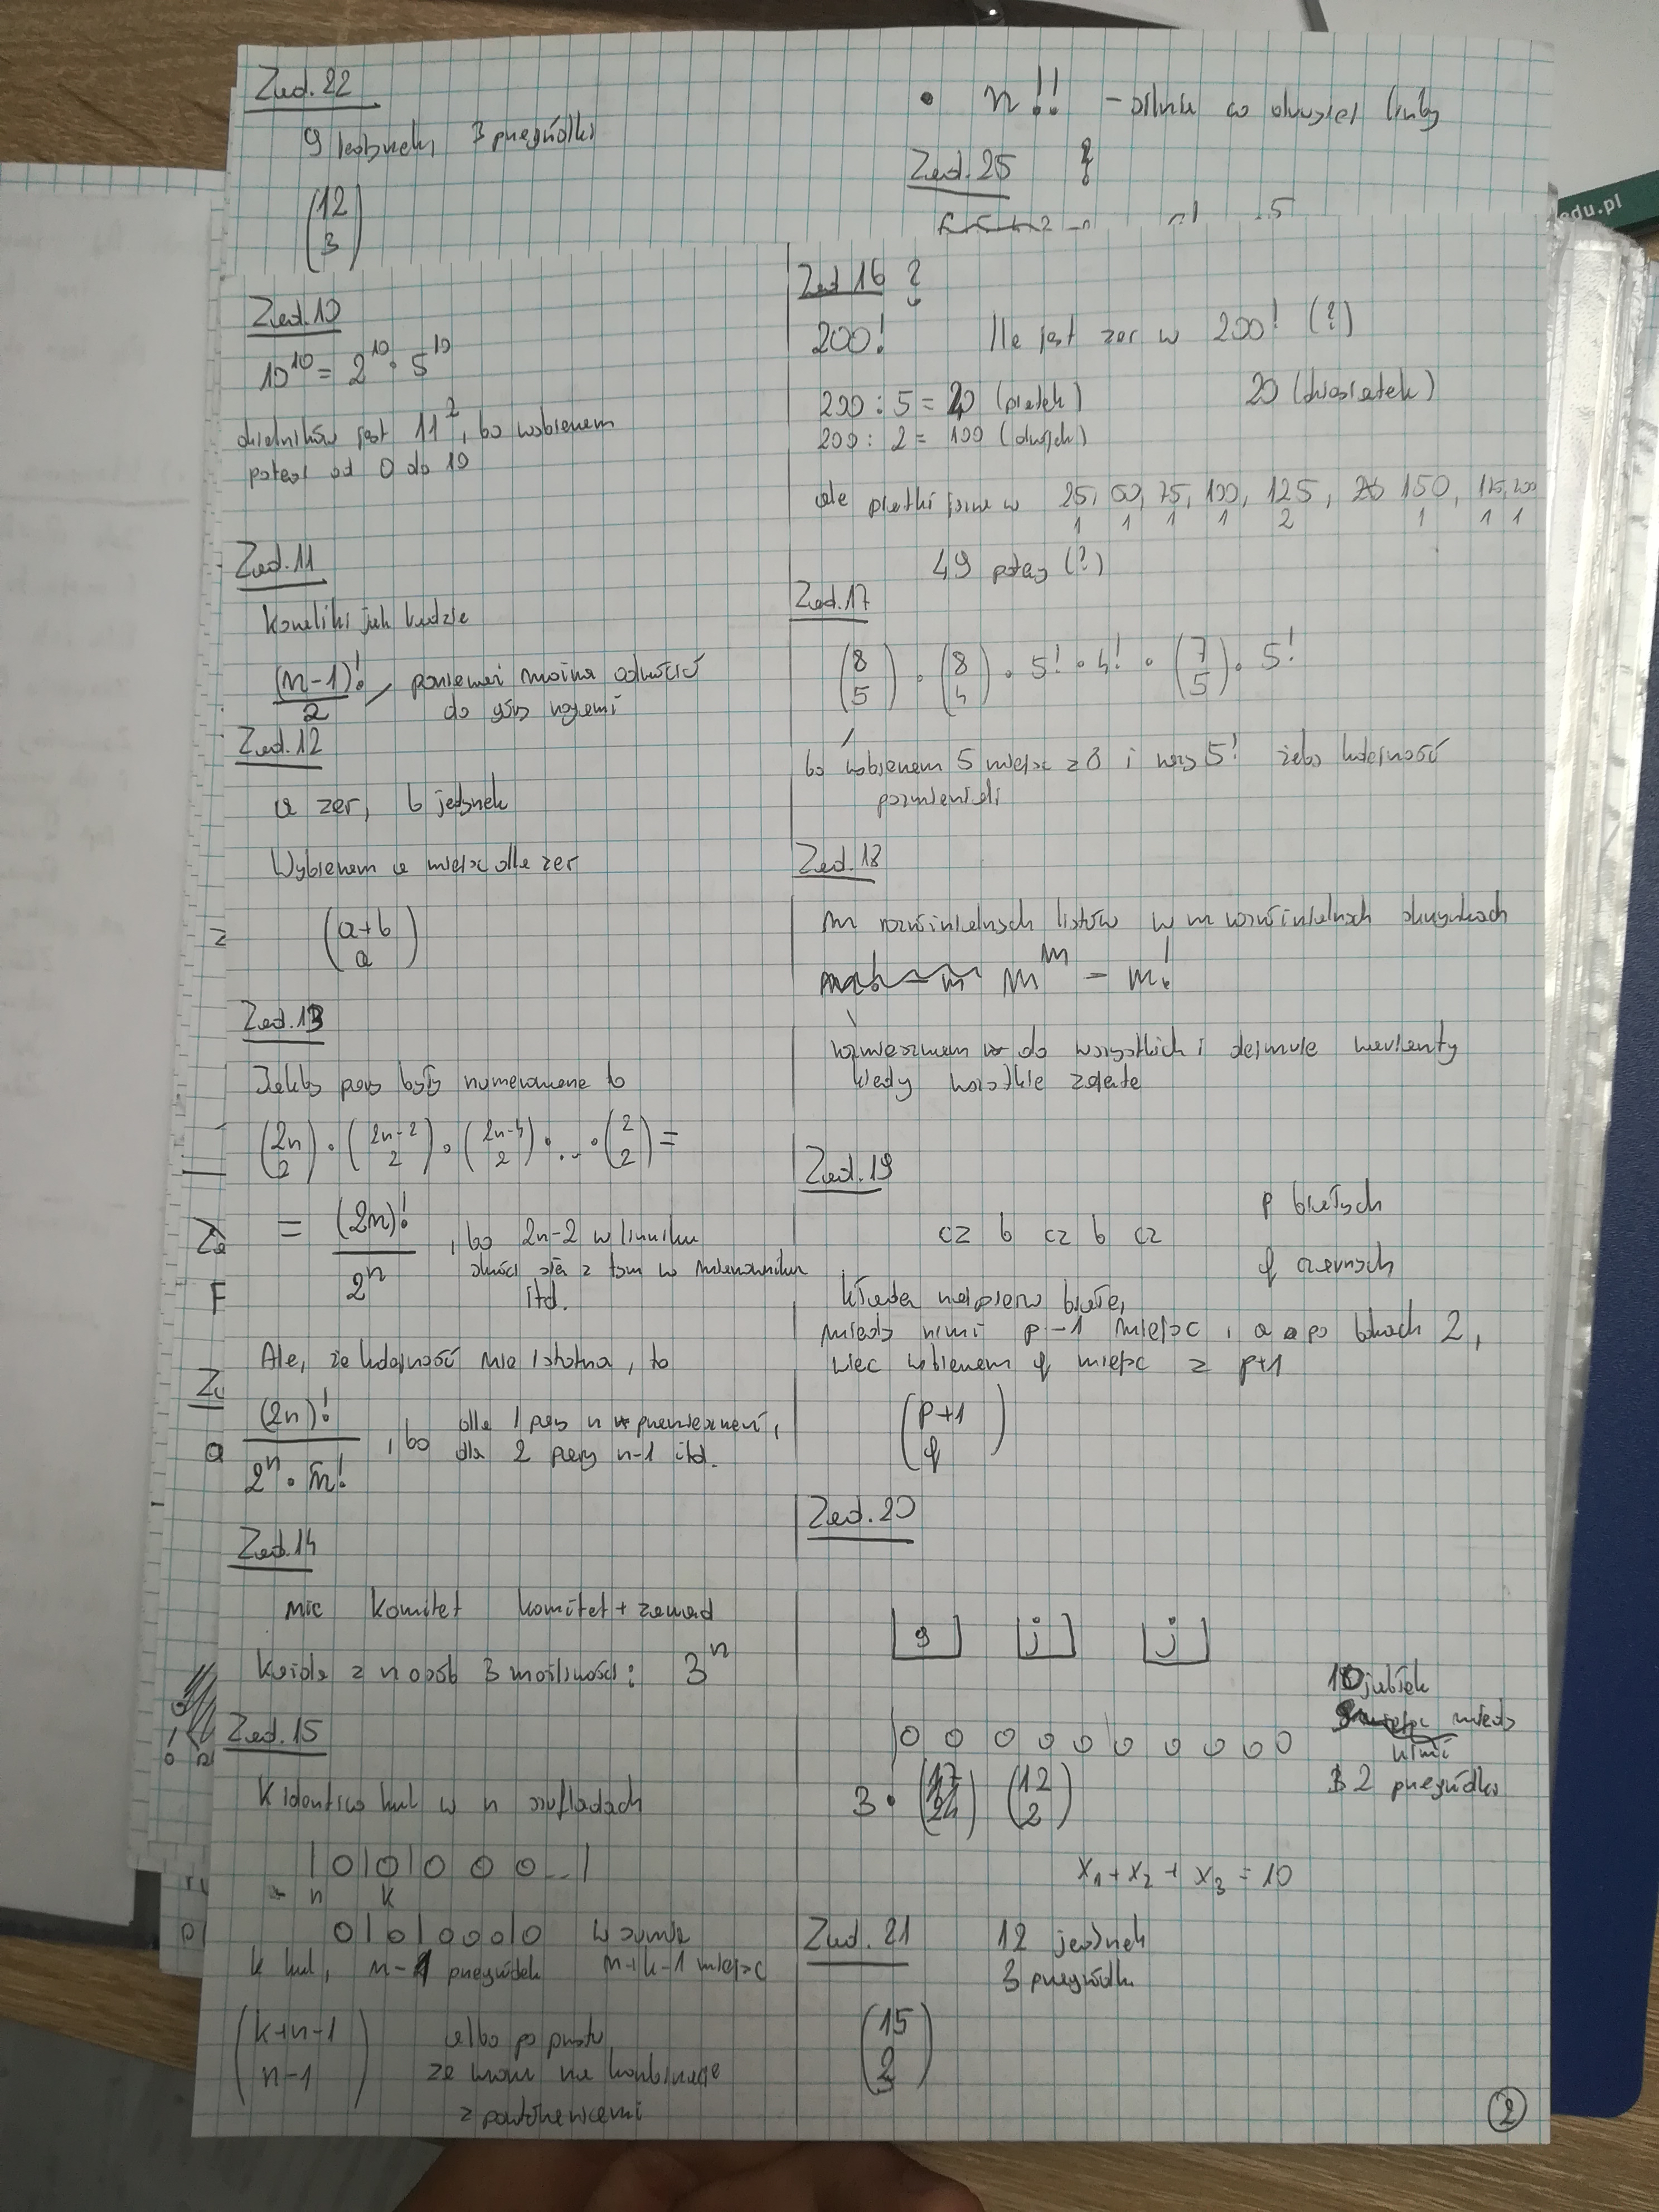 Zad. 22
9 jedynek, 3 przegródki
(12 3)
• n!! - silnia co drugiej liczby
Zad. 25 ?
edu.pl
Zad. 10
10^10 = 2^10 · 5^10
dzielników jest 11^2, bo wybieram
potęgi od 0 do 10
Zad. 11
Koraliki jak ludzie
(n-1)!/2, ponieważ można odwrócić
do góry nogami
Zad. 12
a zer, b jedynek
Wybieram a miejsc dla zer
(a+b a)
Zad. 13
Jakby pary były numerowane to
(2n 2) · (2n-2 2) · (2n-4 2) · ... · (2 2) =
= (2n)!/2^n, bo 2n-2 w liczniku
skróci się z tym w mianowniku
itd.
Ale, że kolejność nie istotna, to
(2n)!/2^n · n!, bo dla 1 pary n przemieszczeń,
dla 2 pary n-1 itd.
Zad. 14
nic komitet komitet + zarząd
Każda z n osób 3 możliwości: 3^n
Zad. 15
K identico kul w n szufladach
|0|0|0 0 0...|
n k
0|0|0000|0 w sumie
k kul, n-1 przegródek n+k-1 miejsc
(k+n-1 n-1) albo po prostu
ze wzoru na kombinacje
z powtórzeniami
Zad 16 ?
200! Ile jest zer w 200! (?)
200 : 5 = 40 (piątek) 20 (dziesiątek)
200 : 2 = 100 (dwójek)
ale piątki jeszcze w 25, 50, 75, 100, 125, 150, 175, 200
1 1 1 1 2 1 1 1
49 potęg (?)
Zad. 17
(8 5) · (8 4) · 5! · 4! · (7 5) · 5!
bo wybieram 5 miejsc z 8 i razy 5! żeby kolejność
pozmieniali
Zad. 18
m rozróżnialnych listów w m rozróżnialnych skrzynkach
m^m - m!
rozmieszczam do wszystkich i odejmuję warianty
kiedy wszystkie zajęte
Zad. 19
cz b cz b cz p białych
q czarnych
kładę najpierw białe,
między nimi p-1 miejsc, a po bokach 2,
więc wybieram q miejsc z p+1
(p+1 q)
Zad. 20
|g| |j| |j|
10 jabłek
między
nimi
2 przegródki
0 0 0 0 0 0 0 0 0 0
3 · (12 2)
x₁ + x₂ + x₃ = 10
Zad. 21 12 jedynek
3 przegródki
(15 3)
2